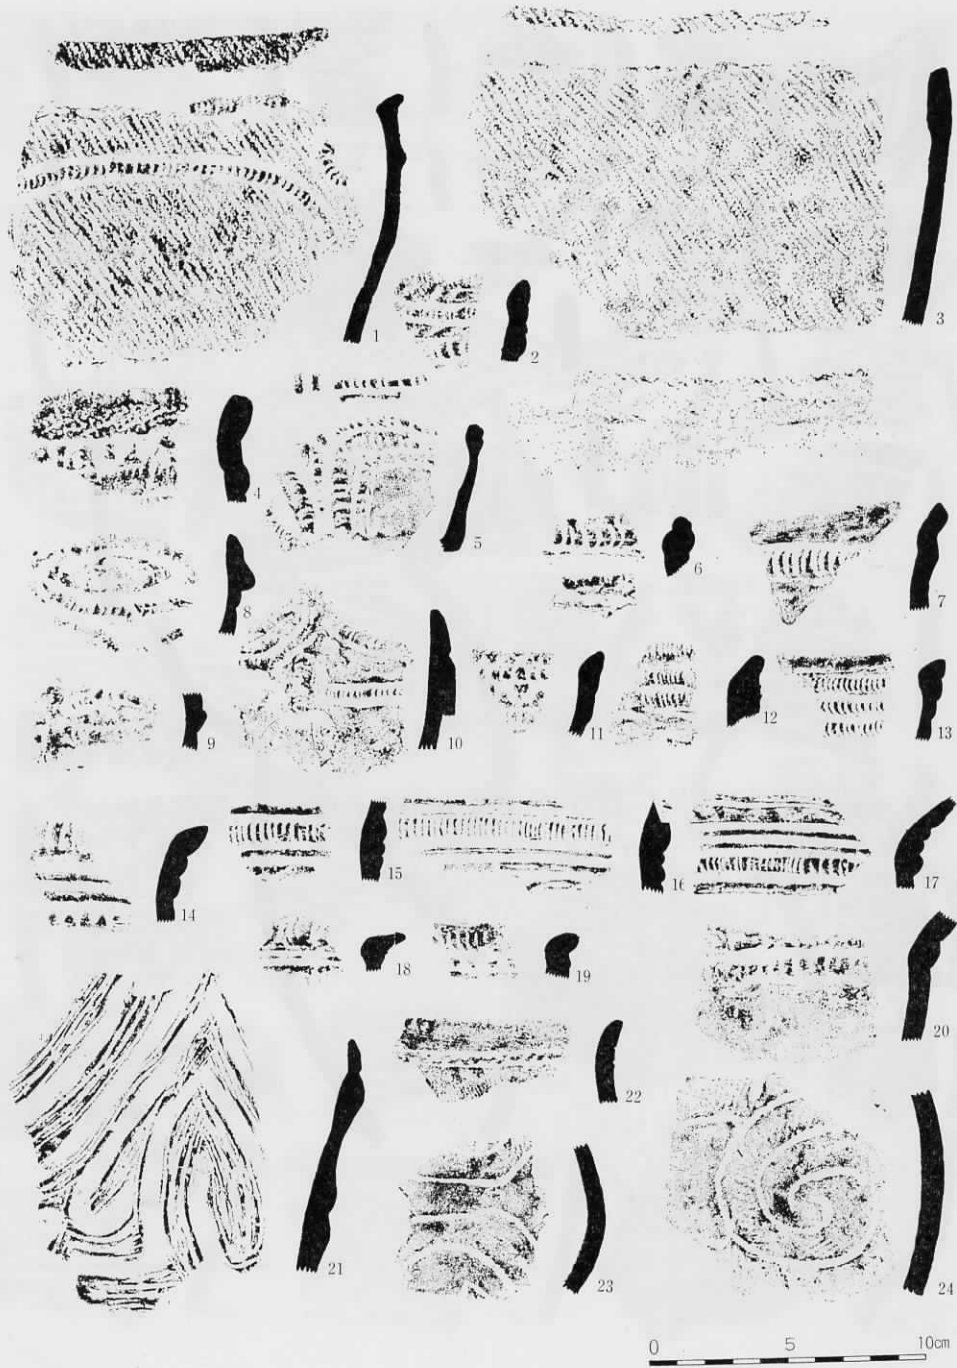 1
2
3
4
5
6
7
8
9
10
11
12
13
14
15
16
17
18
19
20
21
22
23
24
0 5 10cm